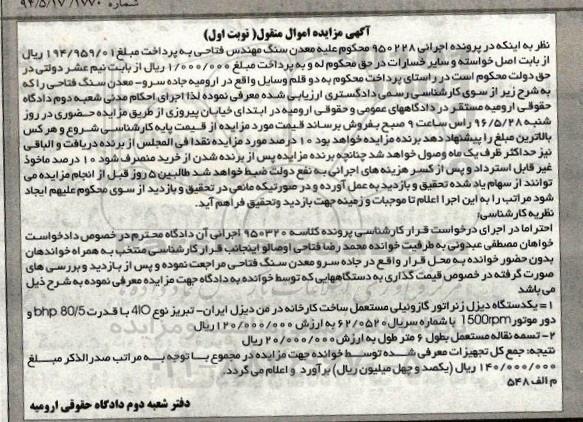 شماره ۱۷۷۰ ۹۴/۵/۱۷
آگهی مزایده اموال منقول( نوبت اول)
نظر به اینکه در پرونده اجرائی ۹۵۰۲۲۸ محکوم علیه معدن سنگ مهندس فتاحی به پرداخت مبلغ ۱۹۴/۹۵۹/۰۱ ریال
از بابت اصل خواسته و سایر خسارات در حق محکوم له و به پرداخت مبلغ ۱/۰۰۰/۰۰۰ ریال از بابت نیم عشر دولتی در
حق دولت محکوم است در راستای پرداخت محکوم به دو قلم وسایل واقع در ارومیه جاده سرو- معدن سنگ فتاحی را که
به شرح زیر از سوی کارشناسی رسمی دادگستری ارزیابی شده معرفی نموده لذا اجرای احکام مدنی شعبه دوم دادگاه
حقوقی ارومیه مستقر در دادگاههای عمومی و حقوقی ارومیه در ابتدای خیابان پیروزی از طریق مزایده حضوری در روز
شنبه ۹۶/۵/۲۸ راس ساعت ۹ صبح بفروش برساند قیمت مورد مزایده از قیمت پایه کارشناسی شروع و هر کس
بالاترین مبلغ را پیشنهاد دهد برنده مزایده خواهد بود ۱۰ درصد مورد مزایده نقدا فی المجلس از برنده دریافت و الباقی
نیز حداکثر ظرف یک ماه وصول خواهد شد چنانچه برنده مزایده پس از برنده شدن از خرید منصرف شود ۱۰ درصد ماخوذ
غیر قابل استرداد و پس از کسر هزینه های اجرائی به نفع دولت ضبط خواهد شد طالبین ۵ روز قبل از انجام مزایده می
توانند از سهام یاد شده تحقیق و بازدید به عمل آورده و در صورتیکه مانعی در تحقیق و بازدید از سوی محکوم علیهم ایجاد
شود مراتب را به این اجرا اعلام تا موجبات و زمینه جهت بازدید وتحقیق فراهم آید.
نظریه کارشناسی:
احتراما در اجرای درخواست قرار کارشناسی پرونده کلاسه ۹۵۰۳۲۰ اجرائی آن دادگاه محترم در خصوص دادخواست
خواهان مصطفی عبدونی به طرفیت خوانده محمد رضا فتاحی اوصالو اینجانب قرار کارشناسی منتخب به همراه خواندهان
بدون حضور خوانده به محل قرار واقع در جاده سرو معدن سنگ فتاحی مراجعت نموده و پس از بازدید و بررسی های
صورت گرفته در خصوص قیمت گذاری به دستگاههایی که توسط خوانده به دادگاه جهت مزایده معرفی نموده به شرح ذیل
می باشد
۱= یکدستگاه دیزل زنراتور گازوئیلی مستعمل ساخت کارخانه در من دیزل ایران- تبریز نوع 4IO با قدرت 80/5 bhp و
دور موتور 1500rpm با شماره سریال ۶۲/۰۵۲۰ به ارزش ۱۲۰/۰۰۰/۰۰۰ ریال
۲- تسمه نقاله مستعمل بطول ۶ متر طول به ارزش ۲۰/۰۰۰/۰۰۰ ریال
نتیجه: جمع کل تجهیزات معرفی شده توسط خوانده جهت مزایده در مجموع با توجه به مراتب صدرالذکر مبلغ
۱۴۰/۰۰۰/۰۰۰ ریال (یکصد و چهل میلیون ریال) برآورد و اعلام می گردد.
م الف ۵۴۸
دفتر شعبه دوم دادگاه حقوقی ارومیه